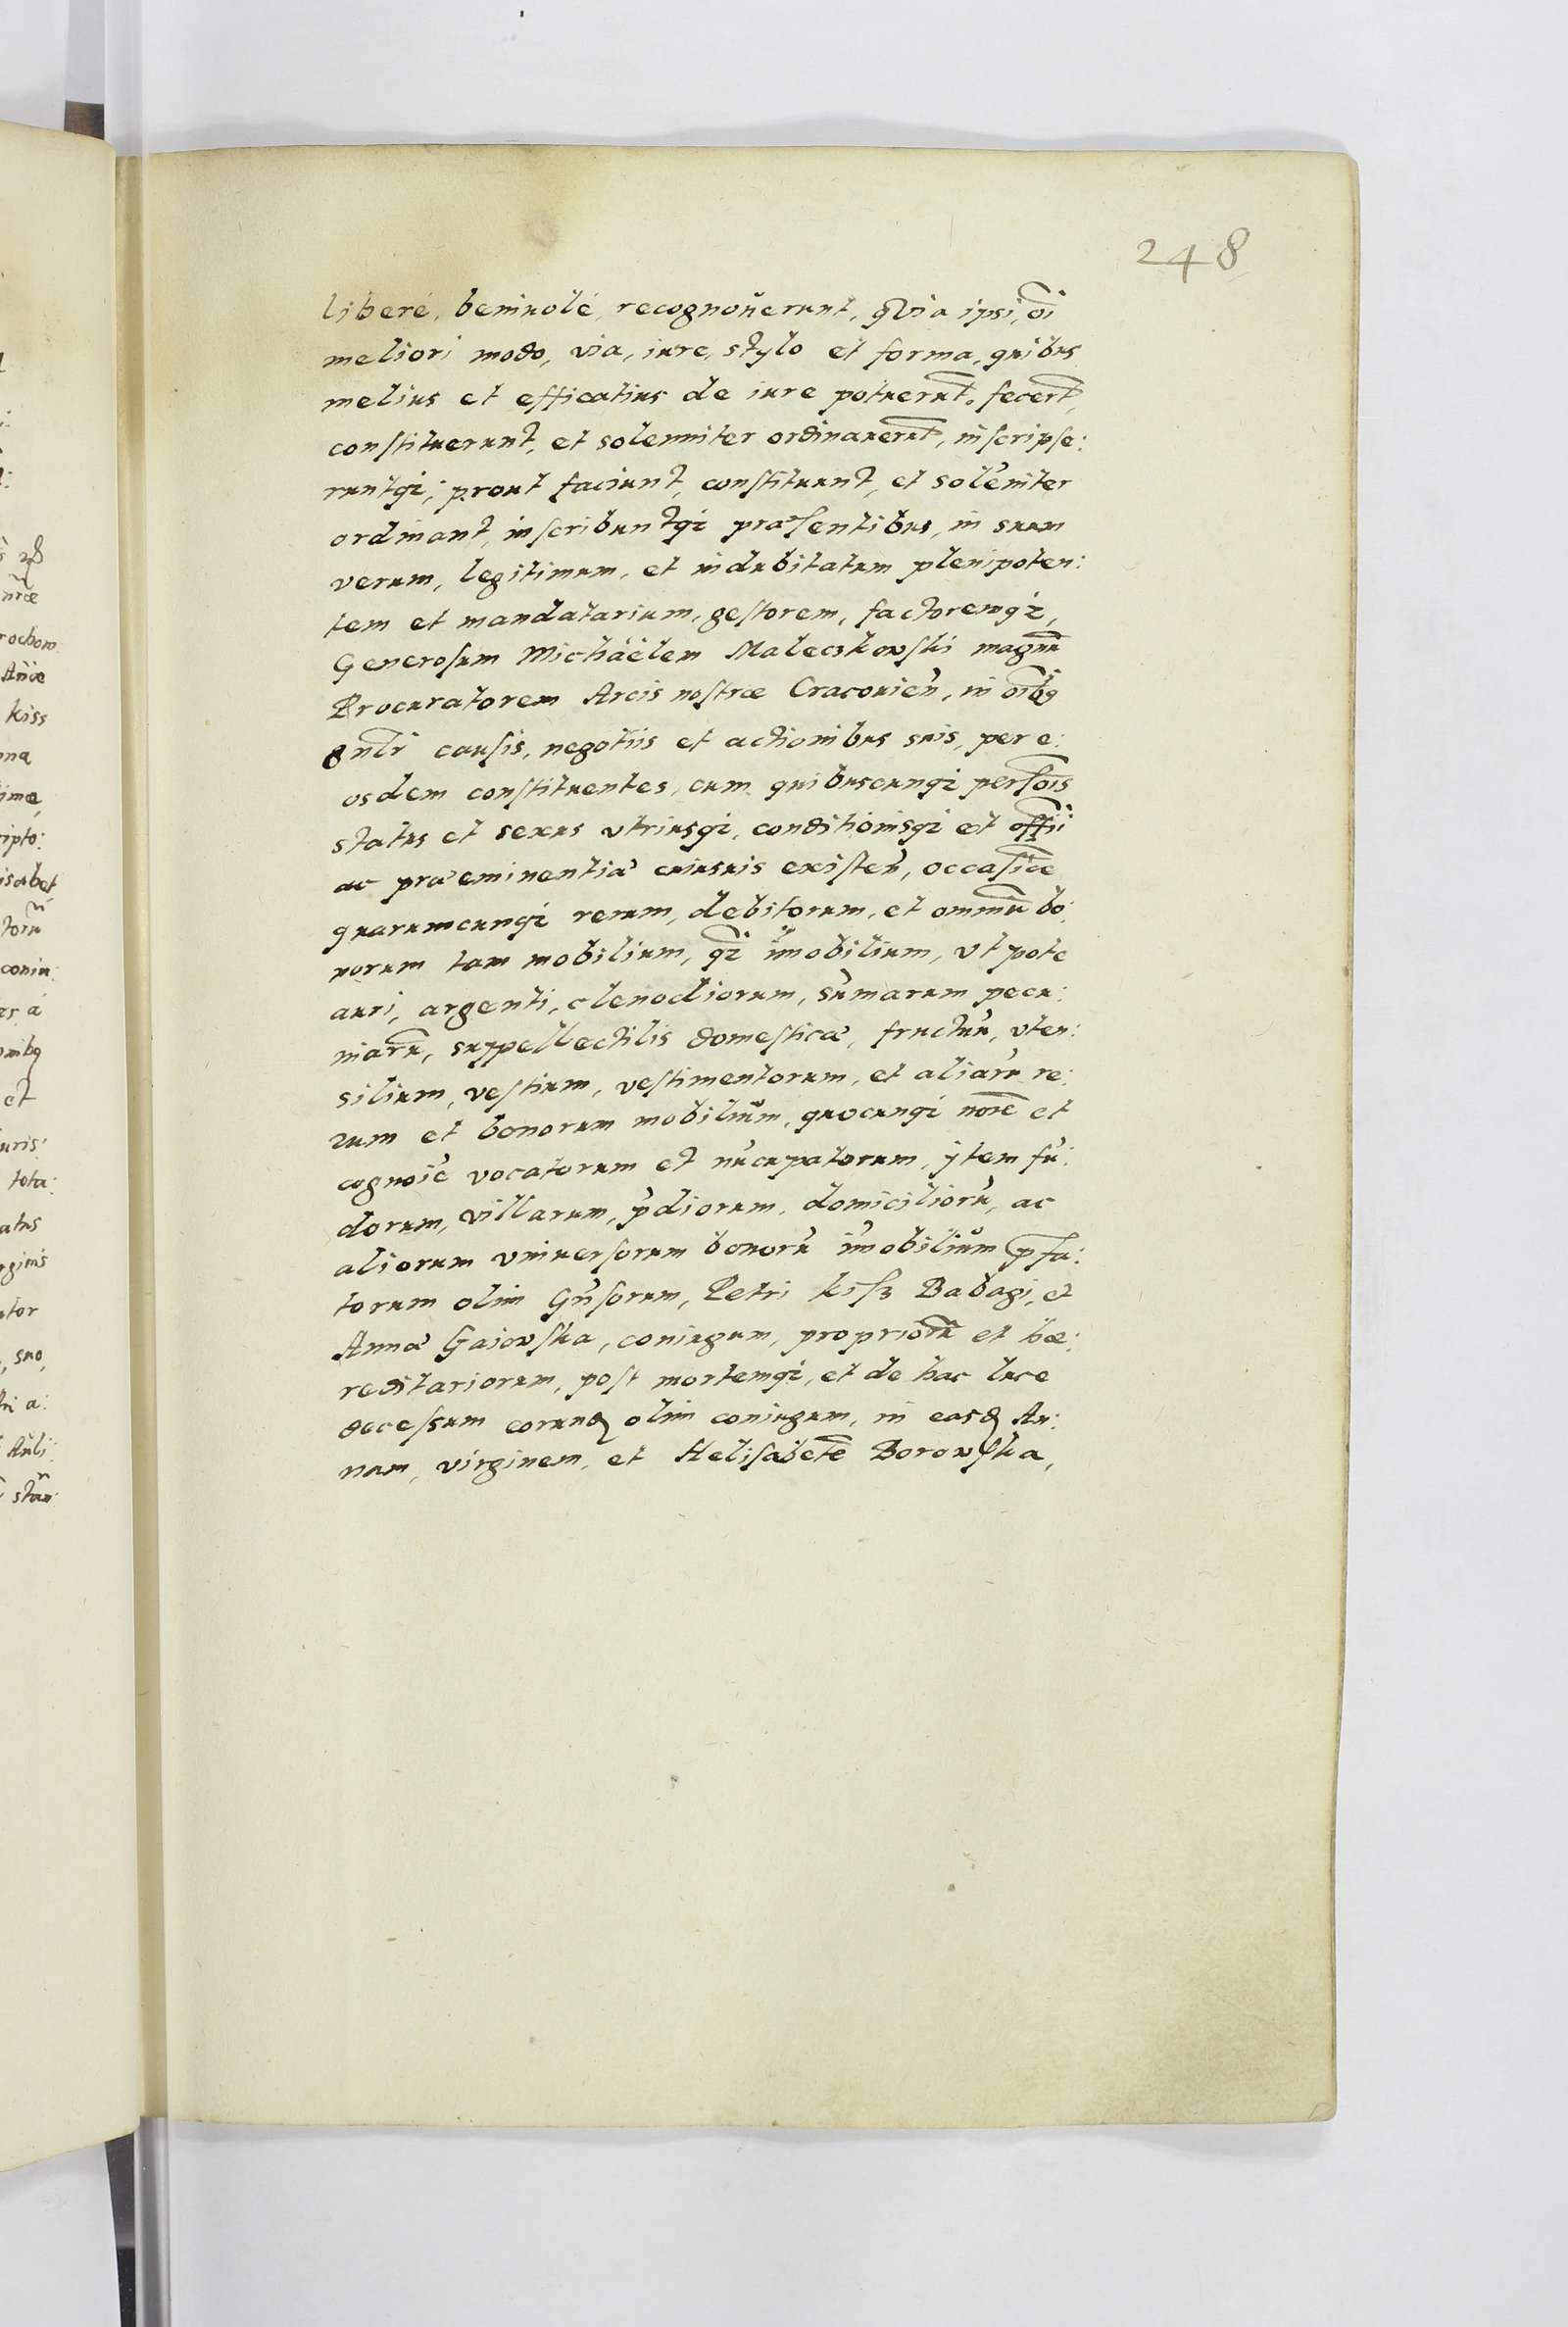 248
liberé, beniuolé, recognouerunt, quia ipsi, oi
meliori modo, via, iure, stylo et forma, quibus
melius et efficatius de iure potuerut. fecert,
constituerunt, et solenniter ordinauerut, inscripse:
runtqi; prout faciunt, constituunt, et soleniter
ordinant, inscribuntqi præsentibus, in suum
verum, legitimum, et indubitatum plenipoten:
tem et mandatarium, gestorem, factoremqi,
Generosum Michäelem Maleczkowski magnu
Procuratorem Arcis nostræ Cracouien, in oibq
gntr causis, negotiis et actionibus suis, per e:
osdem constituentes, cum quibuscunqi persois
status et sexus vtriusqi, conditionisqi et offii
ac præeminentiæ cuiusuis existen, occasiõe
quarumcunqi rerum, debitorum, et omniũ bo:
norum tam mobilium, qz ĩmobilium, vtpote
auri, argenti, clenodiorum, sũmarum pecu:
niarũ, suppellectilis domesticæ, fructuũ, vten:
silium, vestium, vestimentorum, et aliarũ re:
rum et bonorum mobilium, quocunqi noie et
cognoie vocatorum et nũcupatorum, ytem fũ:
dorum, villarum, p̃diorum, domiciliorũ, ac
aliorum vniuersorum bonorũ ĩmobilium p̃fa:
torum olim Gñsorum, Petri kisz Babagi, et
Annæ Gaiowska, coniugum, propriorũ et hæ:
reditariorum, post mortemqi, et de hac luce
decessum eorund olim coniugum, in easd An:
nam, virginem, et Helisabetẽ Borowska,